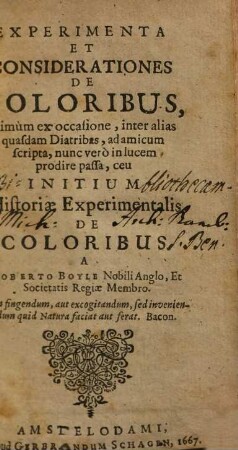 EXPERIMENTA
ET
CONSIDERATIONES
DE
COLORIBUS,
primùm ex occasione, inter alias
quasdam Diatribas, ad amicum
scripta, nunc verò in lucem
prodire passa, ceu
INITIUM
Historiæ Experimentalis
DE
COLORIBUS
A
ROBERTO BOYLE Nobili Anglo, Et
Societatis Regiæ Membro.
fingendum, aut excogitandum, sed invenien-
dum quid Natura faciat aut ferat. Bacon.
AMSTELODAMI,
GERBRANDUM SCHAGEN, 1667.